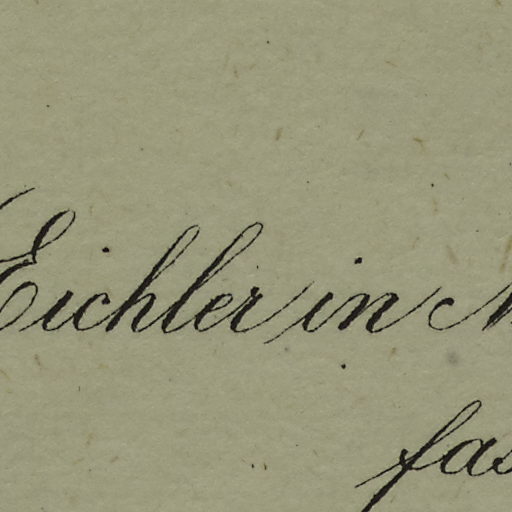 Eichler in
fas